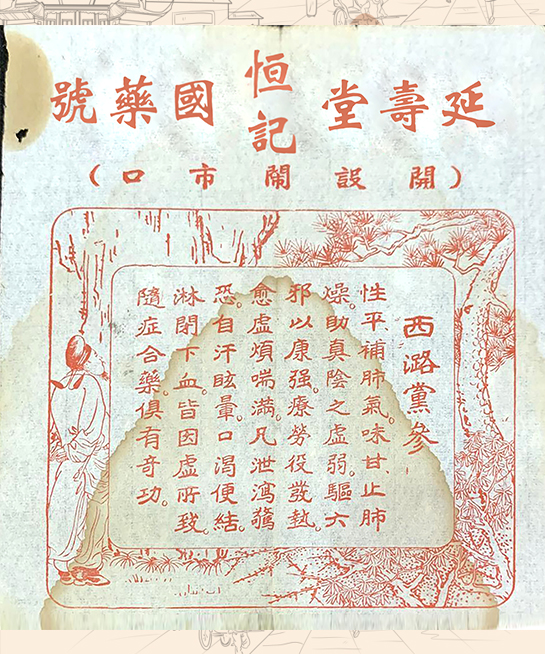 延壽堂恒記國藥號
（開設鬧市口）
西潞黨參
性平、補肺氣。味甘、止肺
燥。助真陰之虛弱。驅六
邪以康强。療勞役發熱。
愈虛煩喘滿。凡泄瀉驚
恐。自汗眩暈。口渴便結。
淋閉下血。皆因虛所致。
隨症合藥。俱有奇功。